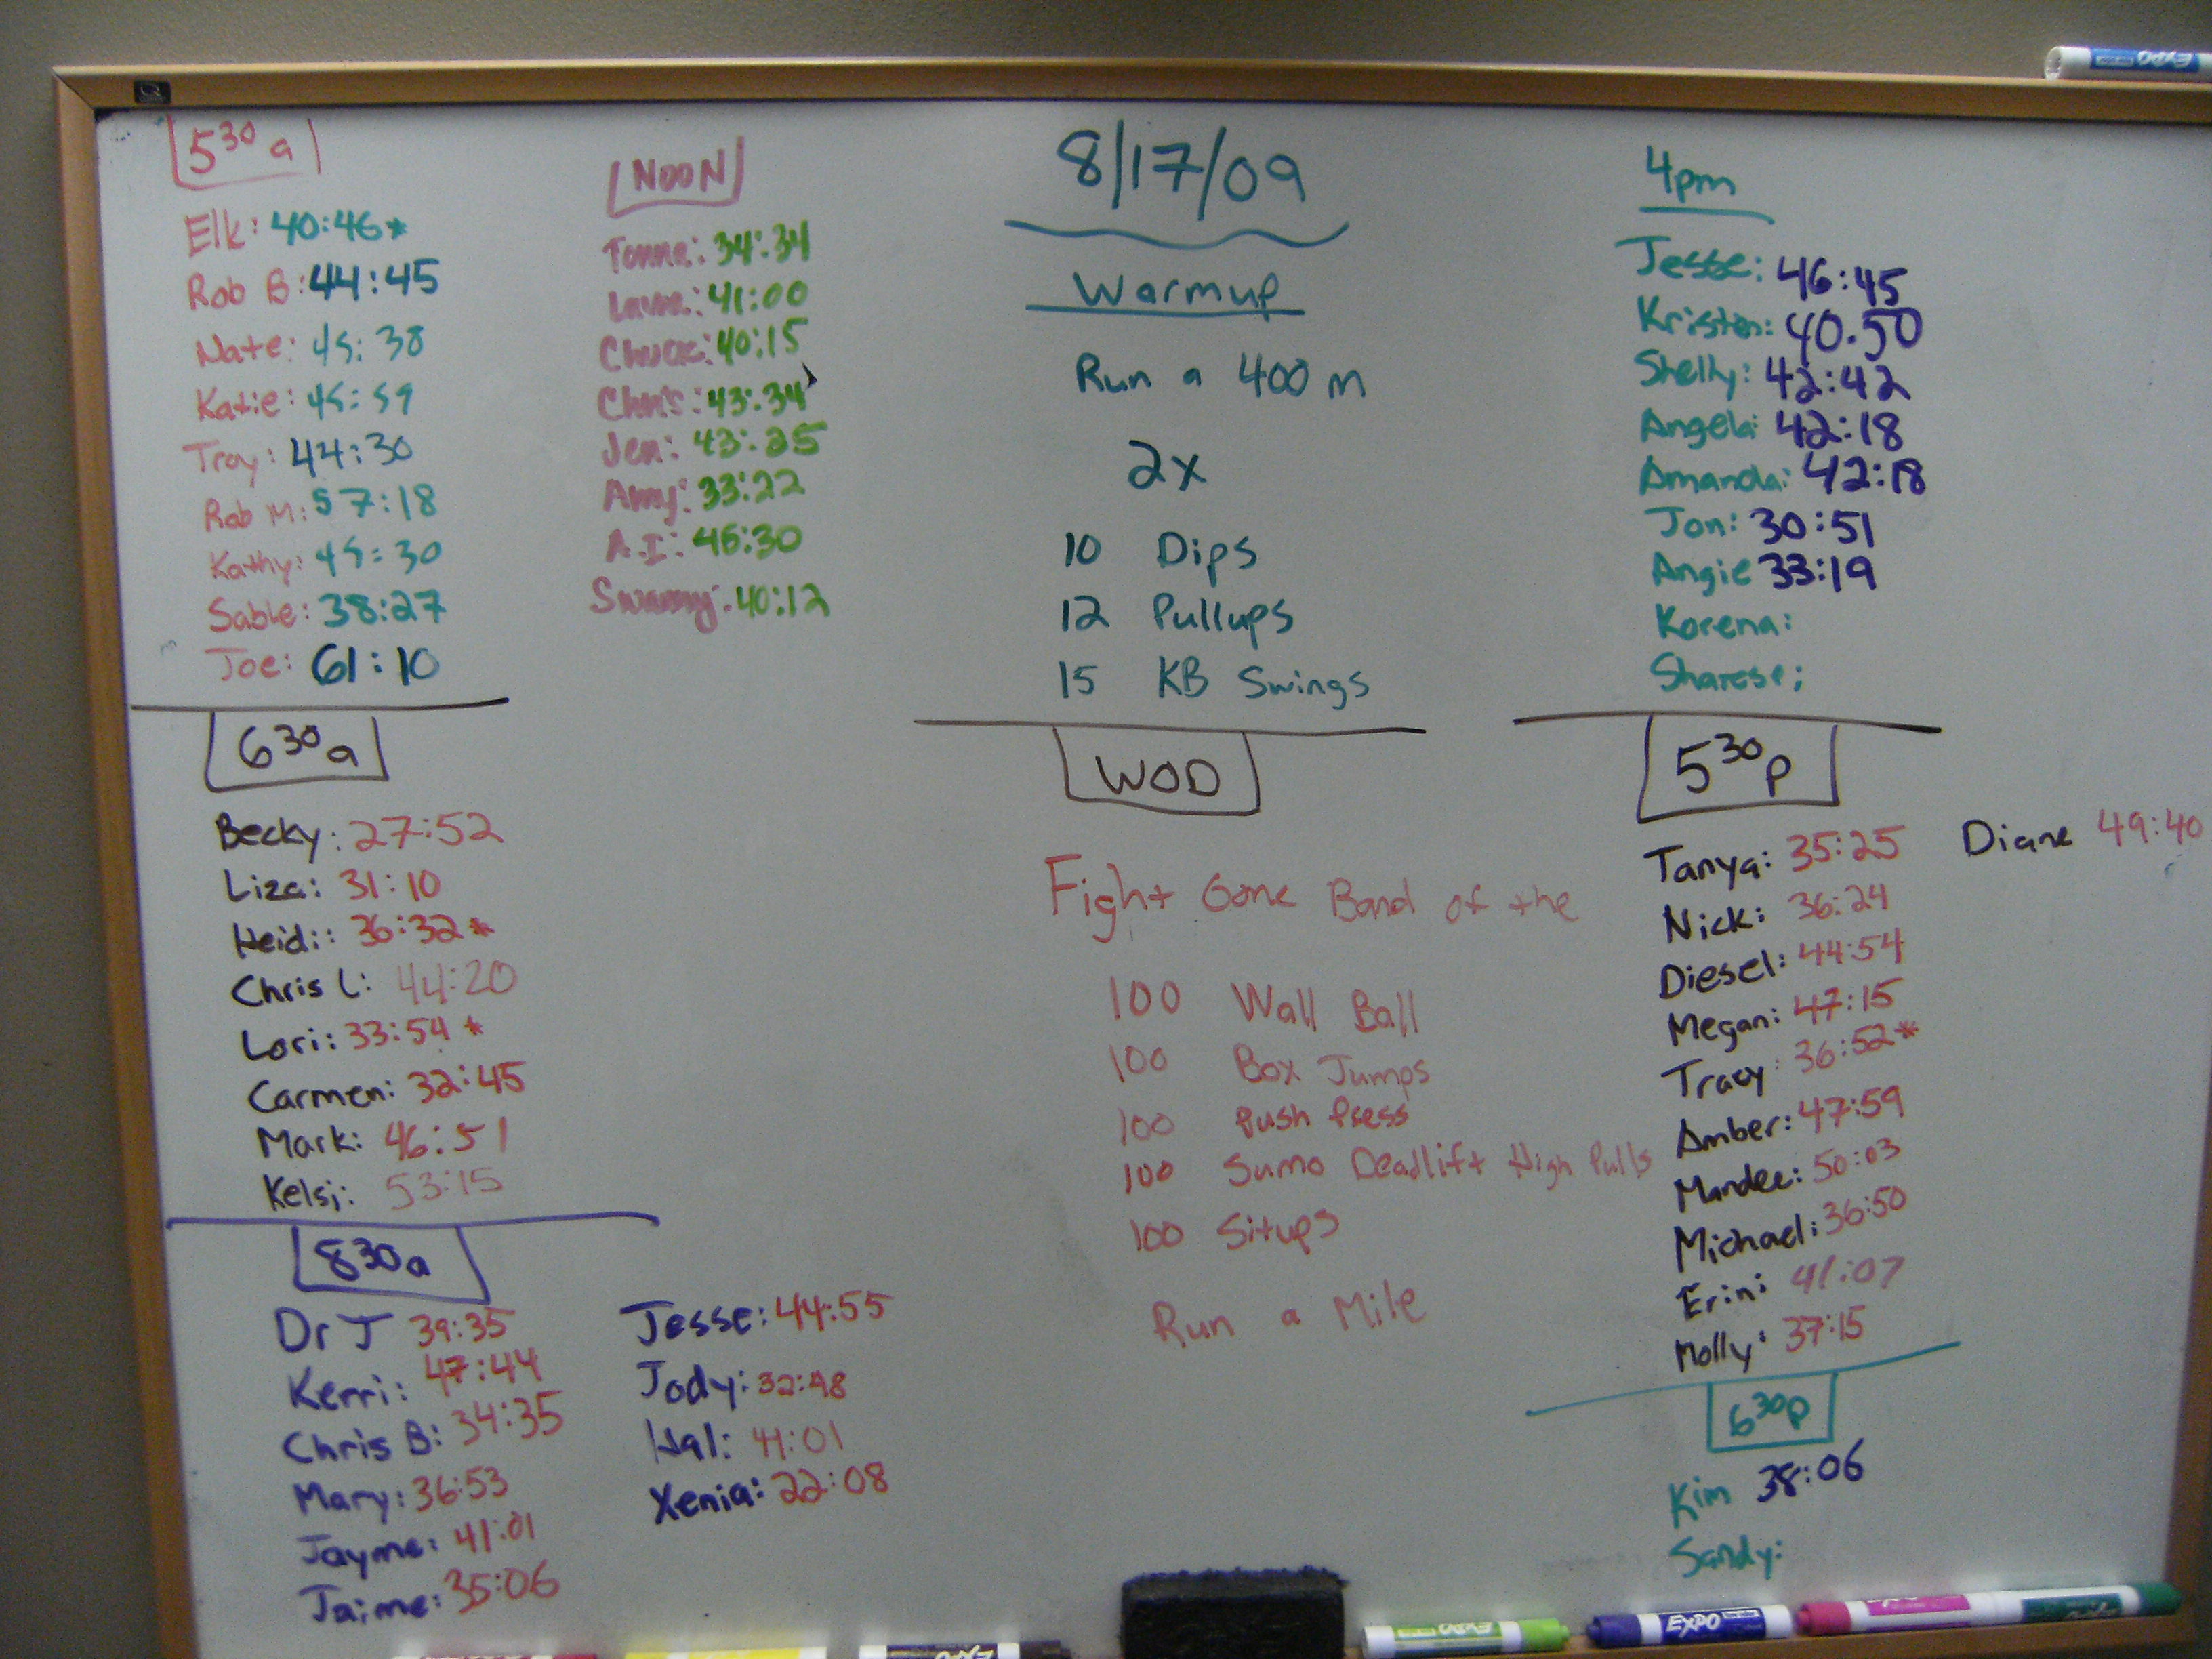 5 30 a
Elk: 40:46*
Rob B: 44:45
Nate: 45:38
Katie: 45:59
Troy: 44:30
Rob M: 57:18
Kathy: 45:30
Sable: 38:27
Joe: 61:10
NOON
34:34
41:00
Chuck: 40:15
Chris: 43:34
Jen: 43:25
Amy: 33:22
A.I: 46:30
Swanny: 40:12
8/17/09
Warmup
Run a 400 m
2x
10 Dips
12 Pullups
15 KB Swings
4pm
Jesse: 46:45
Kristen: 40.50
Shelly: 42:42
Angela: 42:18
Amanda: 42:18
Jon: 30:51
Angie 33:19
Korena:
Sharese:
6 30 a
Becky: 27:52
Liza: 31:10
Heidi: 36:32*
Chris L: 44:20
Lori: 33:54*
Carmen: 32:45
Mark: 46:51
Kelsi: 53:15
WOD
Fight Gone Band of the
100 Wall Ball
100 Box Jumps
100 Push Press
100 Sumo Deadlift High Pulls
100 Situps
Run a Mile
5 30 p
Tanya: 35:25 Diane 49:40
Nick: 36:24
Diesel: 44:54
Megan: 47:15
Tracy 36:52*
Amber: 47:59
Mandee: 50:03
Michael: 36:50
Erin: 41:07
Molly: 37:15
8 30 a
Dr J 39:35
Kerri: 47:44
Chris B: 34:35
Mary: 36:53
Jayme: 41:01
Jaime: 35:06
Jesse: 44:55
Jody: 32:48
Hal: 41:01
Xenia: 22:08
6 30 p
Kim 38:06
Sandy:
EXPO
EXPO